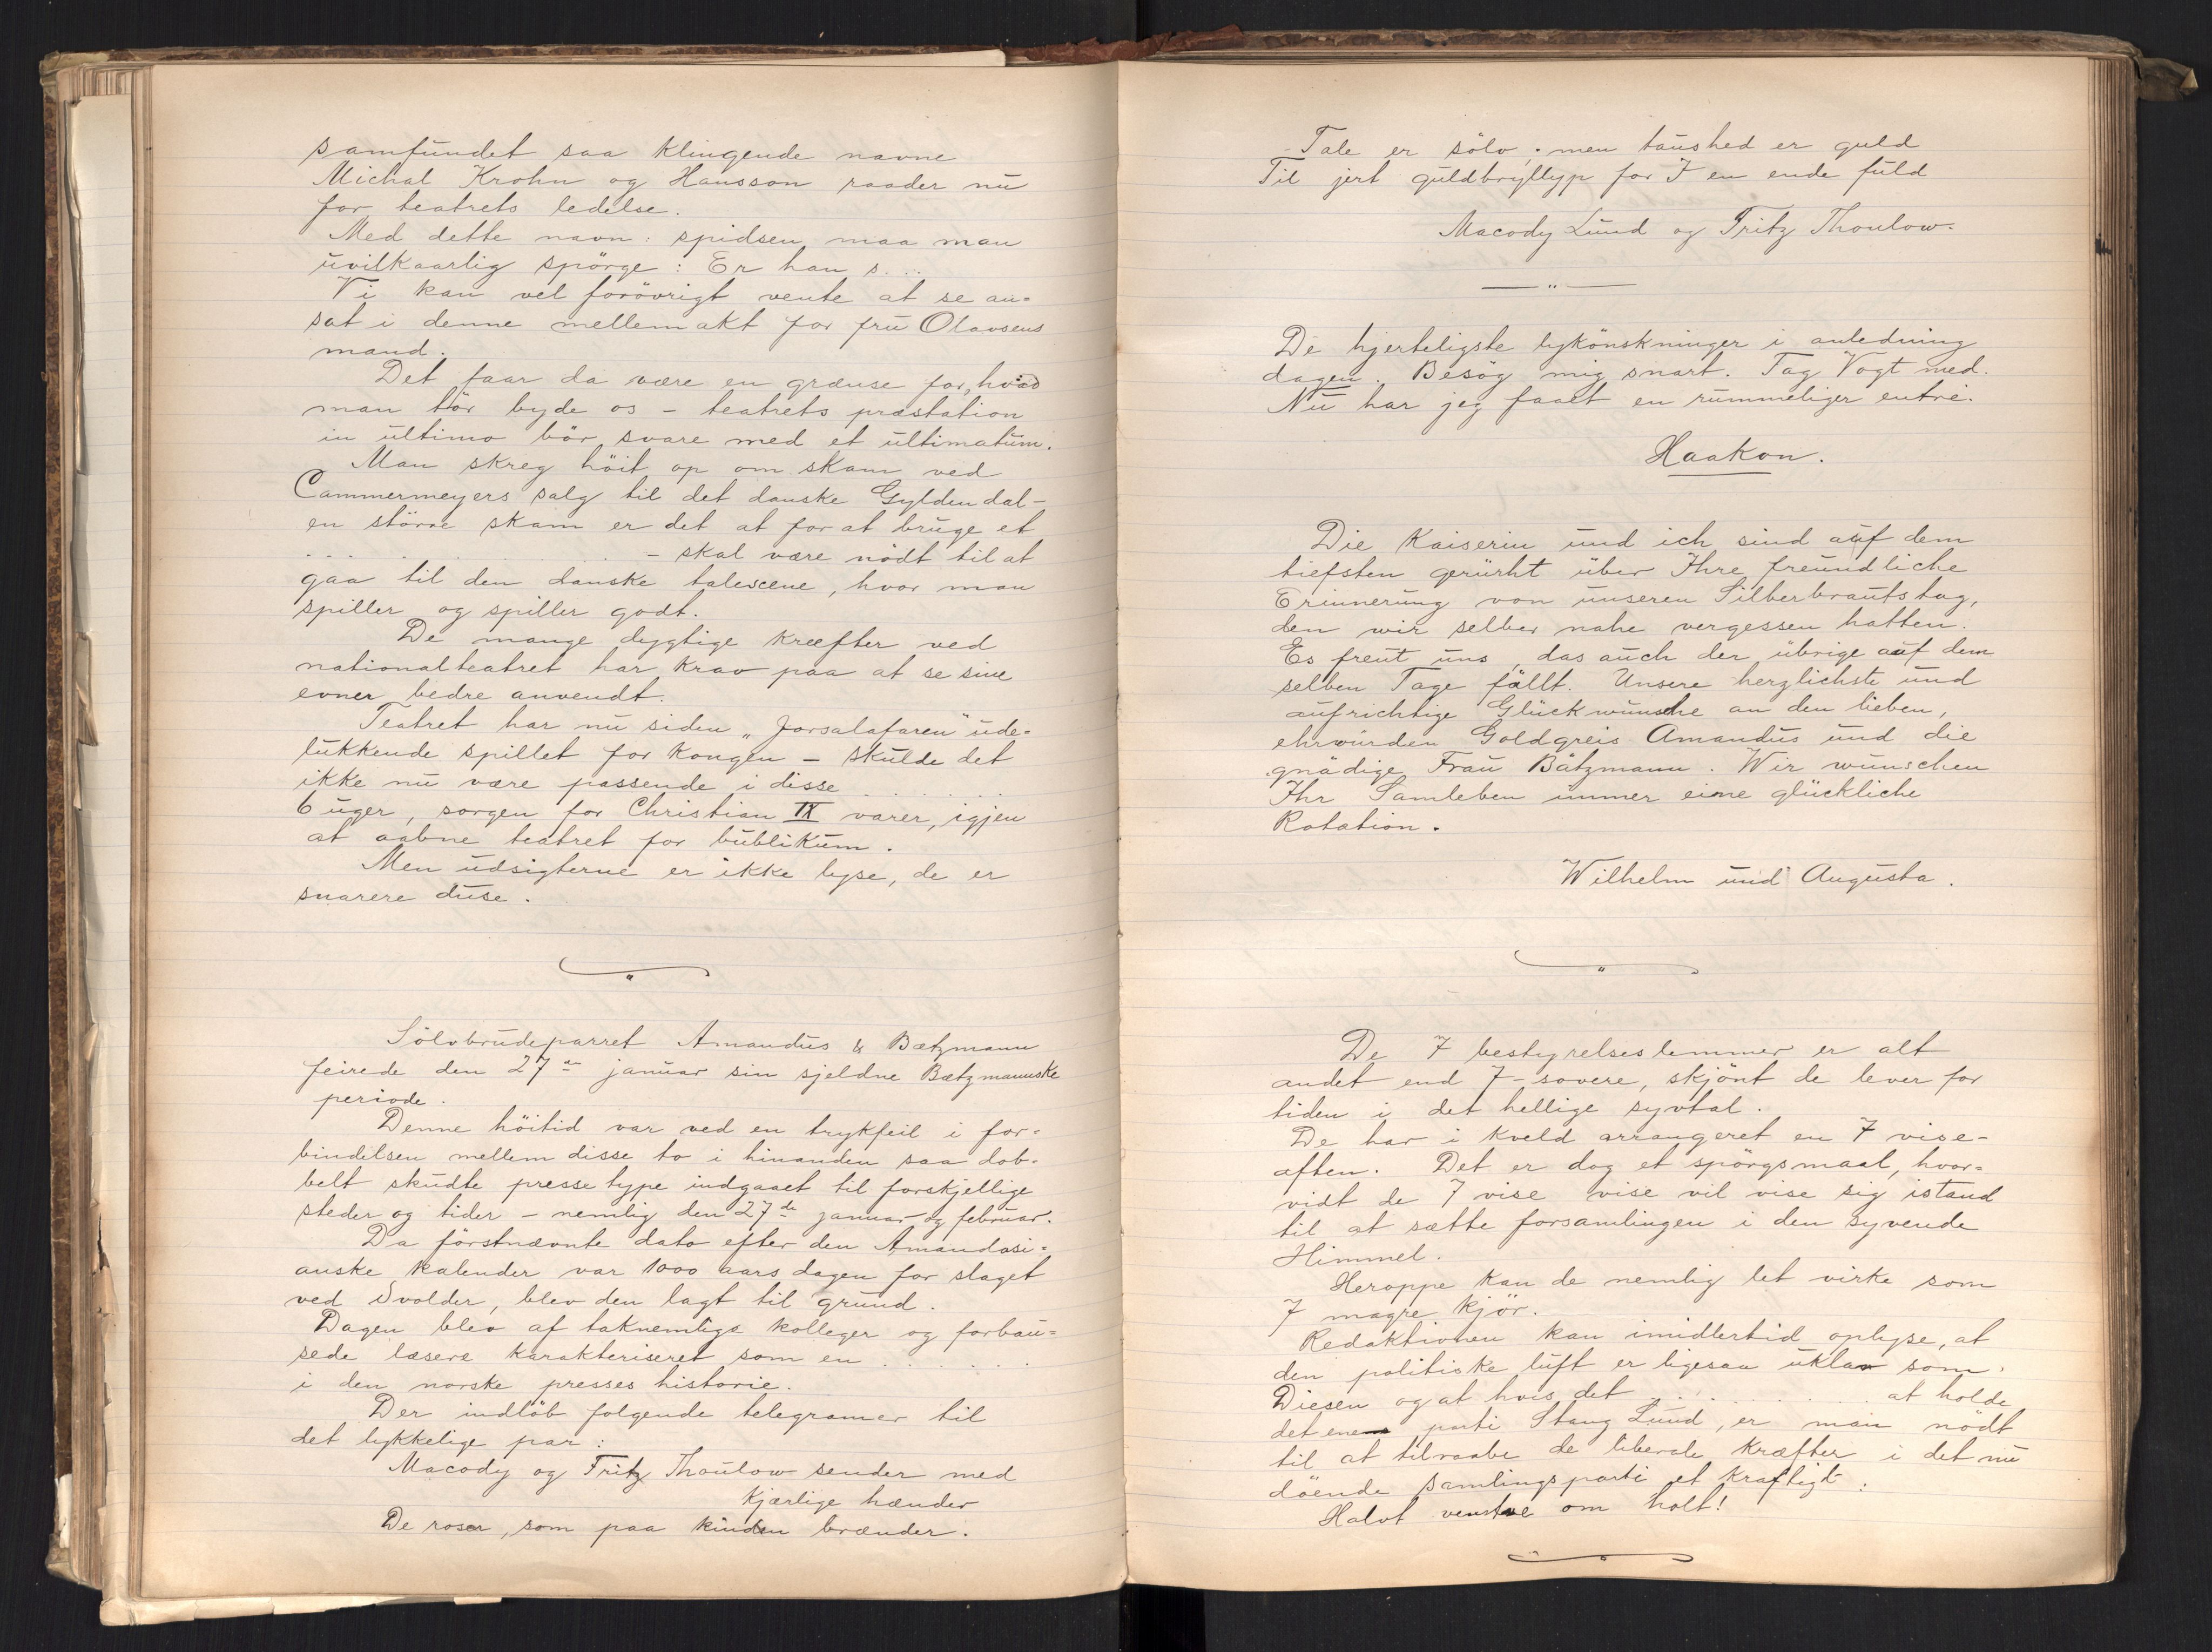 samfundet saa klingende navne
Michal Krohn og Hansson raader nu
for teatrets ledelse.
Med dette navn: spidsen maa man
uvilkaarlig spörge: Er han s....
Vi kan vel forövrigt vente at se an=
sat i denne mellemakt for fru Olavsens
mand.
Det faar da være en grænse for, hvad
man tör byde os - teatrets præstation
in ultimo bör svare med et ultimatum.
Man skreg höit op om skam ved
Cammermeyers salg til det danske Gyldendal-
en större skam er det at for at bruge et
. . . . . . - skal være nödt til at
gaa til den danske talescene, hvor man
spiller og spiller godt.
De mange dygtige kræfter ved
nationalteatret har krav paa at se sine
evner bedre anvendt.
Teatret har nu siden „Jorsalafaren" ude=
lukkende spillet for kongen - skulde det
ikke nu være passende i disse . . . . . .
6 uger, sorgen for Christian IX varer, igjen
at aabne teatret for bublikum.
Men udsigterne er ikke lyse, de er
snarere duse.
Sölvbrudeparret Amandus & Bætzmann
feirede den 27de januar sin sjeldne Bætzmannske
periode.
Denne höitid var ved en trykfeil i for=
bindelsen mellem disse to i hinanden saa dob=
belt skudte presse type indgaaet til forskjellige
steder og tider - nemlig den 27de januar og februar.
Da förstnævnte dato efter den Amandasi=
anske kalender var 1000 aars dagen for slaget
ved Svolder, blev den lagt til grund.
Dagen blev af taknemlige kolleger og forbau=
sede læsere karakteriseret som en . . . . . . .
i den norske presses historie.
Der indlöb følgende telegramer til
det lykkelige par:
Macody og Fritz Thaulow sender med
kjærlige hænder
De roser, som paa kinden brænder.
- Tale er sölv; men taushed er guld
Til jert guldbryllyp for I en ende fuld
Macody Lund og Fritz Thoulow.
De hjerteligste lykönskninger i anledning
dagen. Besög mig snart. Tag Vogt med.
Nu har jeg faaet en rummeliger entré.
Haakon.
Die Kaiserin und ich sind auf dem
tiefsten gerürht über Ihre freundliche
Erinnerung von unseren Silberbrautstag,
den wir selber nahe vergessen hatten.
Es freut uns, das auch der übrige auf dem
selben Tage fällt. Unsere herzlichste und
aufrichtige Glückwünsche an den lieben,
ehrwürden Goldgreis Amandus und die
gnädige Frau Bätzmann. Wir wünschen
Ihr Samleben immer eine glückliche
Rotation.
Wilhelm und Augusta.
De 7 bestyrelseslemmer er alt
andet end 7-sovere, skjönt de lever for
tiden i det hellige syvtal.
De har i kveld arrangeret en 7 vise-
aften. Det er dog et spörgsmaal, hvor=
vidt de 7 vise vise vil vise sig istand
til at sætte forsamlingen i den syvende
Himmel.
Heroppe kan de nemlig let virke som
7 magre kjör.
Redaktionen kan imidlertid oplyse, at
den politiske luft er ligesaa uklar som
Diesen og at hvis det . . . . . . . at holde
det ene parti Stang Lund, er man nödt
til at tilraabe de liberale kræfter i det nu
döende samlingsparti et kraftigt:
Halvt venstre om holt!